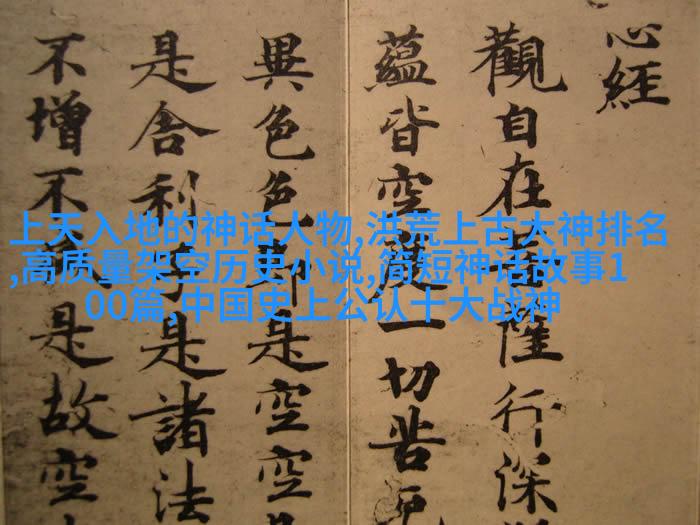 心經
觀自在菩薩行深
蘊皆空度一切苦厄
異色色即是空空
是舍利子是諸法
不增不減是故空
上天入地的神话人物,洪荒上古大神排名
,高质量架空历史小说,简短神话故事1
00篇,中国史上公认十大战神